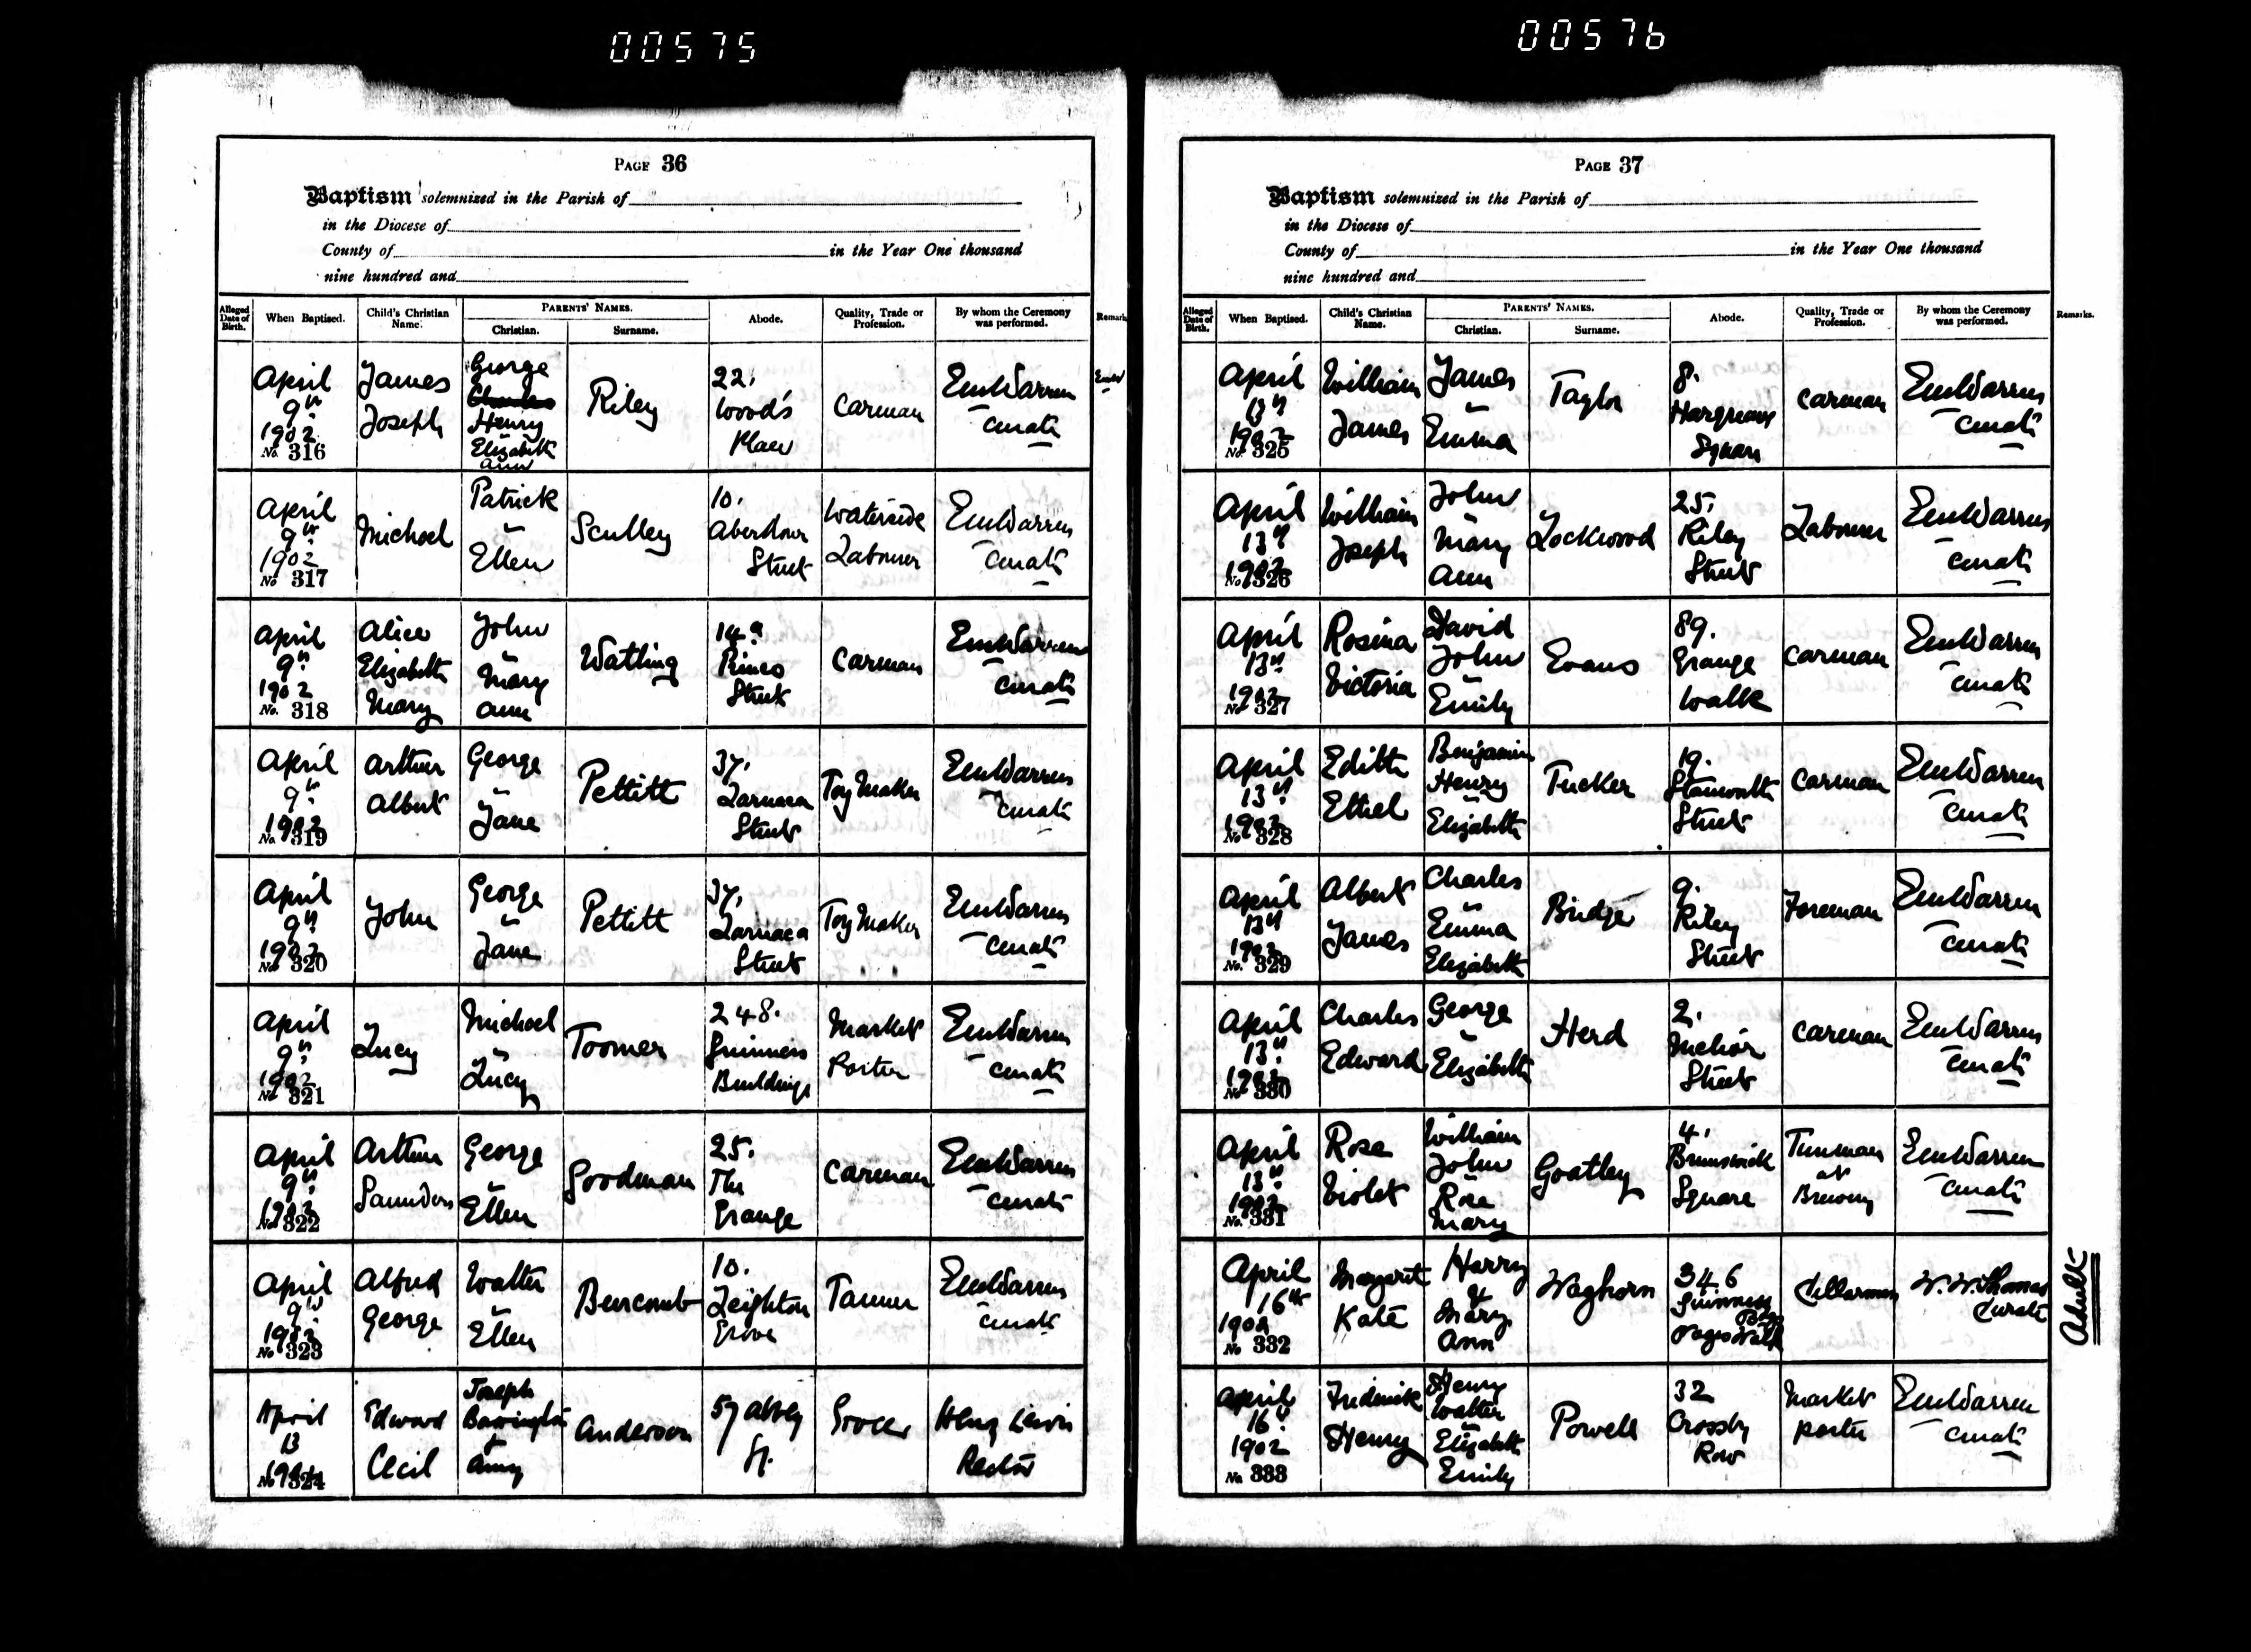 00575
PAGE 36
Baptism solemnized in the Parish of
in the Diocese of
County of in the Year One thousand
nine hundred and
Alleged Date of Birth. When Baptised. Child's Christian Name. PARENTS' NAMES. Christian. Surname. Abode. Quality, Trade or Profession. By whom the Ceremony was performed. Remarks
April 9th 1902 No. 316 James Joseph George Henry Elizabeth Ann Riley 22. Wood's Place Carman Curate
April 9th 1902 No 317 Michael Patrick Ellen Sculley 10. Aberdour Street Waterside Labourer Curate
April 9th 1902 No. 318 Alice Elizabeth Mary John Mary Ann Watling Street Carman Curate
April 9th 1902 No. 319 Arthur Albert George Jane Pettitt 37. Larnaca Street Toy Maker Curate
April 9th 1902 No. 320 John George Jane Pettitt 37. Larnaca Street Toy Maker Curate
April 9th 1902 No. 321 Lucy Michael Lucy Toomer 248. Guinness Buildings Market Porter Curate
April 9th 1902 No. 322 Arthur Saunders George Ellen Goodman 25. The Grange Carman Curate
April 9th 1902 No 323 Alfred George Walter Ellen 10. Leighton Grove Tanner Curate
April 13 1902 No 324 Edward Cecil Joseph Barrington + Amy Anderson 57 Abbey St. Grocer Henry Lewis Rector
00576
PAGE 37
Baptism solemnized in the Parish of
in the Diocese of
County of in the Year One thousand
nine hundred and
Alleged Date of Birth. When Baptised. Child's Christian Name. PARENTS' NAMES. Christian. Surname. Abode. Quality, Trade or Profession. By whom the Ceremony was performed. Remarks.
April 13th 1902 No. 325 William James James Emma Taylor 8. Hargreaves Square Carman Curate
April 13th 1902 No. 326 William Joseph John Mary Ann Lockwood 25. Riley Street Labourer Curate
April 13th 1902 No 327 Rosina Victoria David John Emily Evans 89. Grange Walk Carman Curate
April 13th 1902 No. 328 Edith Ethel Benjamin Henry Elizabeth Tucker 19. Stanworth Street Carman Curate
April 13th 1902 No. 329 Albert James Charles Emma Elizabeth Bridge 9. Riley Street Foreman Curate
April 13th 1902 No 330 Charles Edward George Elizabeth Herd 2. Melior Street Carman Curate
April 13th 1902 No. 331 Rose Violet William John Rose Mary Goatley 4. Brunswick Square Tunman at Brewery Curate
April 16th 1902 No 332 Margaret Kate Harry & Mary Ann Waghorn 346 Guinness Bdgs Pages Walk Cellarman W. W. Thomas Curate Adult
April 16th 1902 No 333 Frederick Henry Henry Walter Elizabeth Emily Powell 32 Crosby Row Market porter Curate